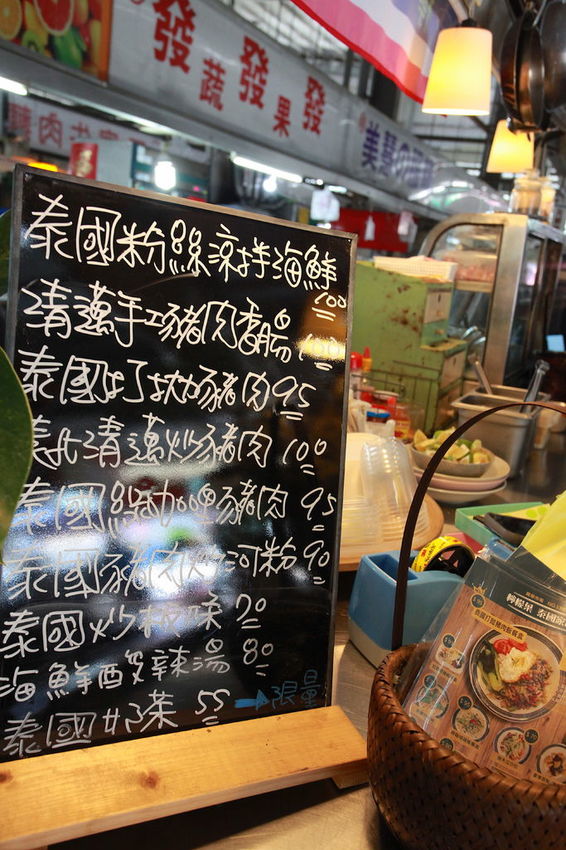 發發發
蔬果
泰國粉絲涼拌海鮮 100
清邁手工豬肉香腸 100
泰國打拋豬肉 95
泰北清邁炒豬肉 100
泰國綠咖哩豬肉 95
泰國豬肉炒河粉 90
泰國炒椒味 70
海鮮酸辣湯 80
泰國奶茶 55 → 限量
檸檬葉 泰國